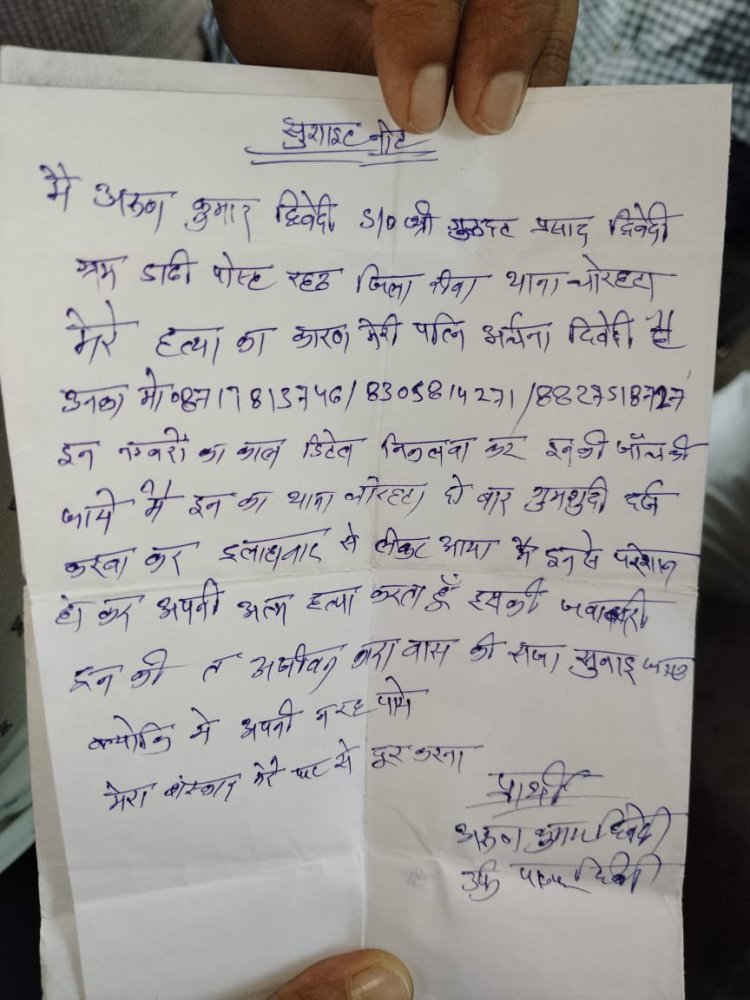 सुसाइट नोट
मै अरूण कुमार द्विवेदी S/O श्री गुरूदत्त प्रसाद द्विवेदी
ग्राम डाढी पोस्ट रहट जिला रीवा थाना चोरहटा
मेरे हत्या का कारण मेरी पत्नि अर्चना द्विवेदी है
उनका मो० 8717813746/8305814271/8827518727
इन नम्बरों का काल डिटेल निकलवा कर इनकी जाँच की
जाये मै इन का थाना चोरहटा दो बार गुमशुदी दर्ज
करवा कर इलाहावाद से लेकर आया मै इनसे परेशान
हो कर अपनी अत्म हत्या करता हूँ इसकी जवाबदारी
इन की त अजीवन कारावास की सजा सुनाइ जाय
क्योकि ये अपनी न रह पाये
मेरा संस्कार मेरे घर से दूर करना
प्रार्थी
अरूण कुमार द्विवेदी
उर्फ द्विवेदी